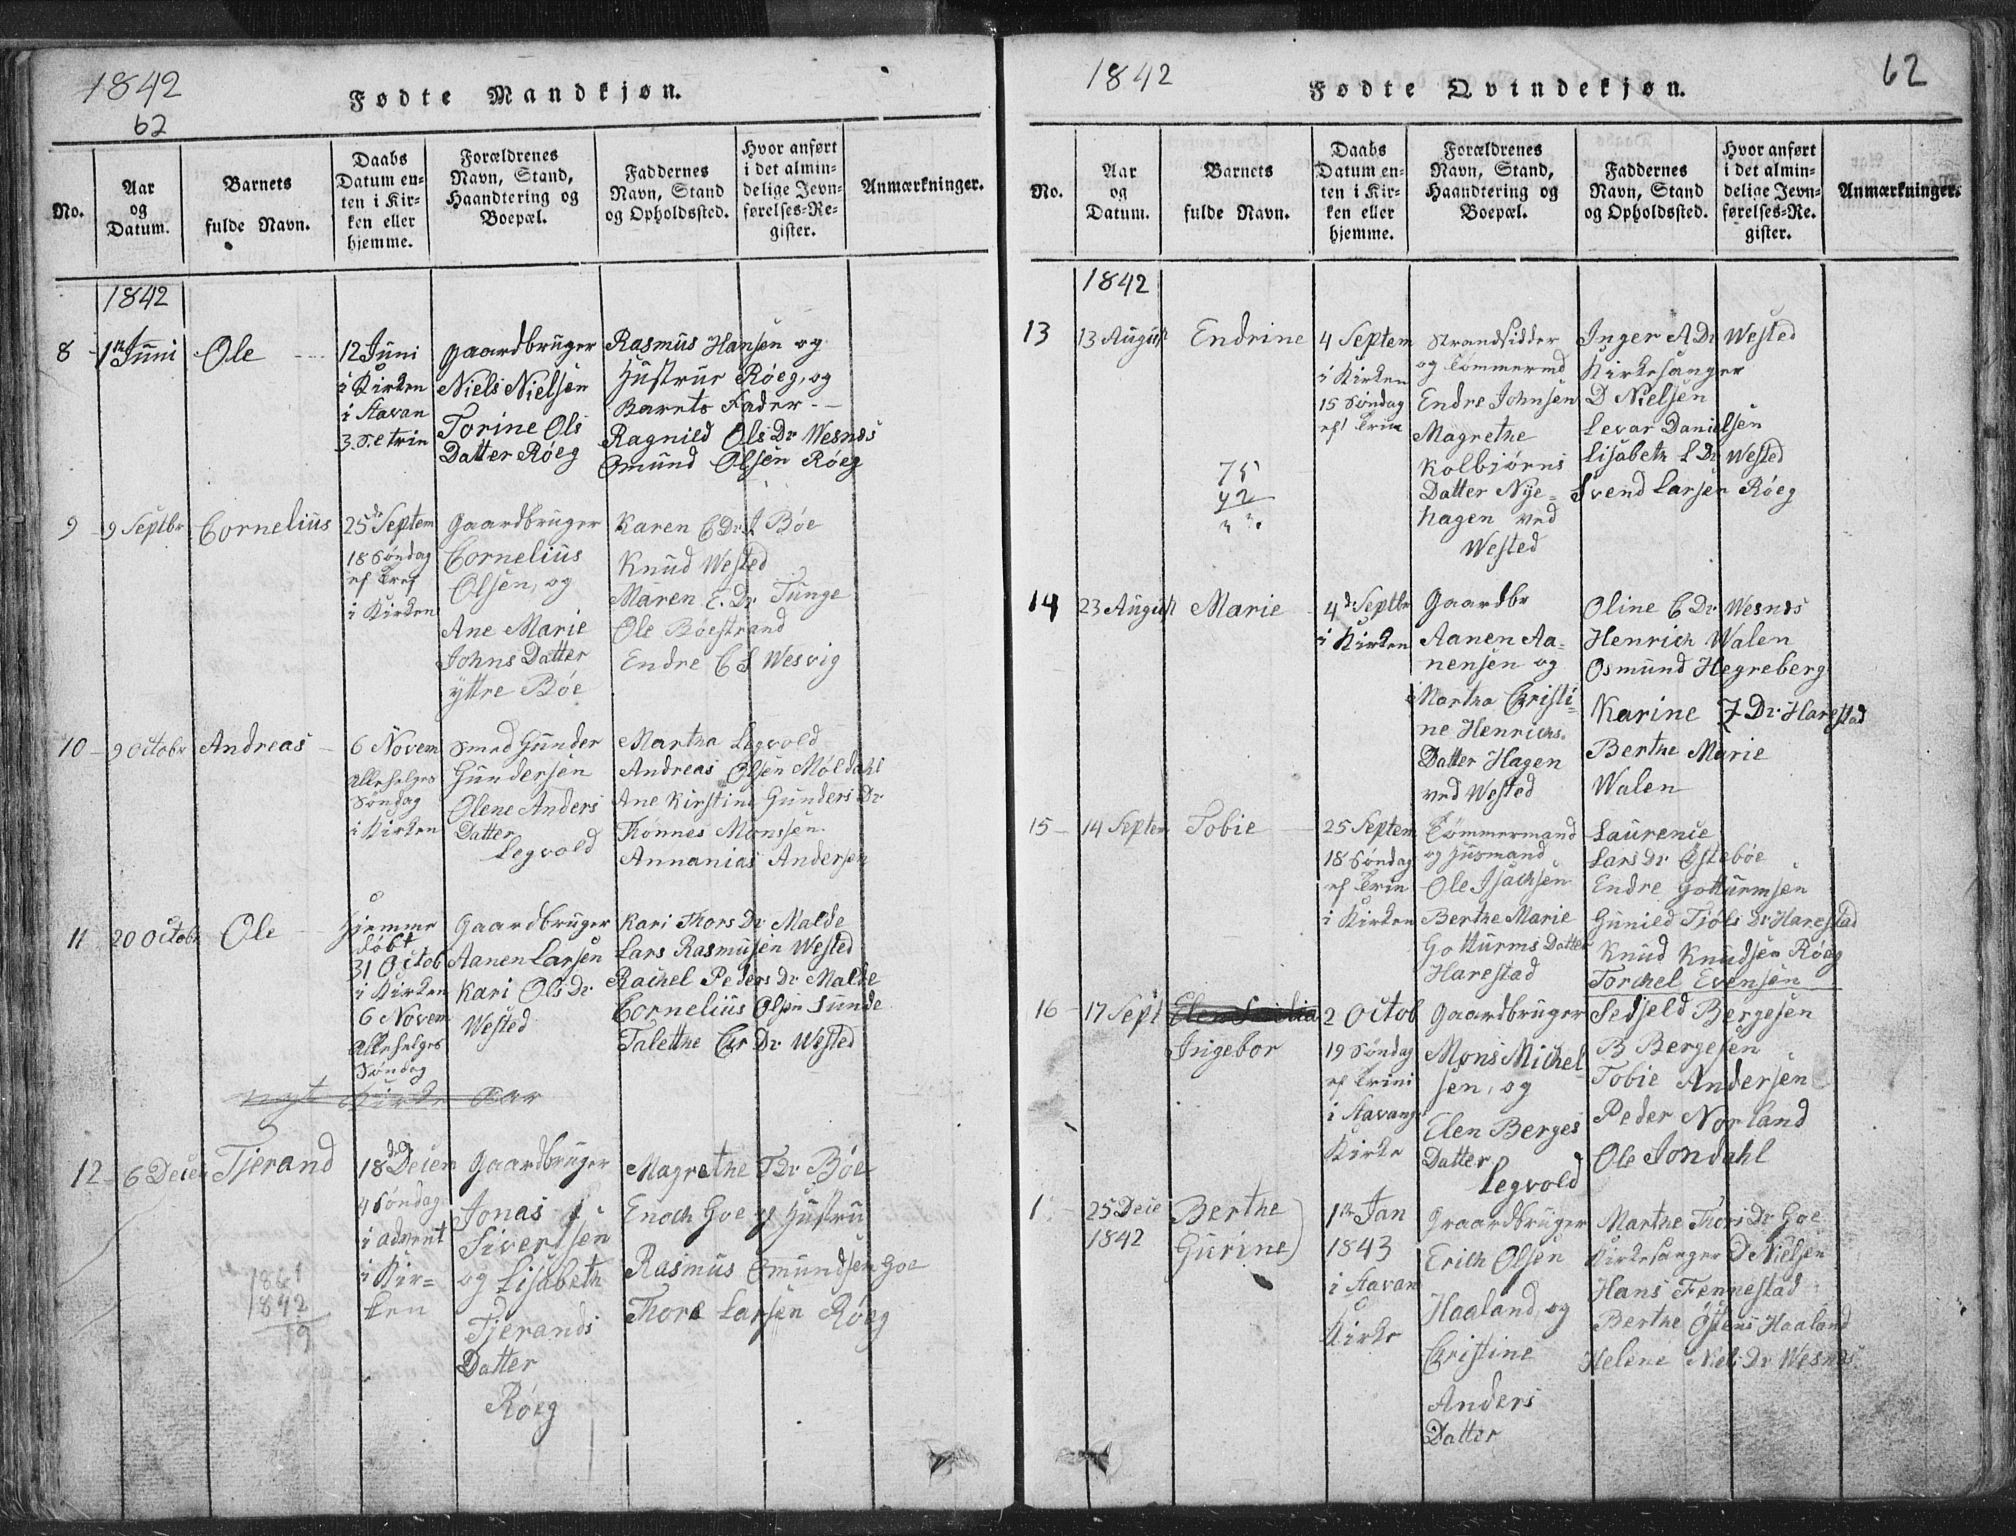 1842
62
Fødte Mandkjøn.
No.
Aar
og
Datum.
Barnets
fulde Navn.
Daabs
Datum en-
ten i Kir-
ken eller
hjemme.
Forældrenes
Navn, Stand,
Haandtering og
Boepæl.
Faddernes
Navn, Stand
og Opholdssted.
Hvor anført
i det almin-
delige Jevn-
førelses-Re-
gister.
Anmærkninger.
1842
8
1ste Juni
Ole
12 Juni
i Kirken
i Stavan
3 S. e trin
Gaardbruger
Niels Nielsen
Torine Ols
Datter Røeg
Rasmus Hansen og
Hustrue Røeg, og
Barets Fader
Ragnild Ols Dr Wesnes
Omund Olsen Røeg
9
9 Septbr
Cornelius
25de Septem
18 Søndag
ef Tref
i Kirken
Gaardbruger
Cornelius
Olsen, og
Ane Marie
Johns Datter
yttre Bøe
Karen C Dr I Bøe
Knud Wested
Maren E. Dr Tunge
Ole Bøestrand
Endre C S Wesvig
10
9 Octobr
Andreas
6 Novem
Allehelges
Søndag
i Kirken
Smed Gunder
Gundersen
Olene Anders
Datter
Legvold
Martha Legvold
Andreas Olsen Møldahl
Ane Kirstine Gunders Dr
Thønnes Monssen
Annanias Andersen
11
20 Octobr
Ole
hjemme
døbt
31 Octob
i Kirken
6 Novem
Allehelges
Søndag
Gaardbruger
Aanen Larsen
Kari Ols Dr
Wested
Kari Thors Dr Malde
Lars Rasmusen Wested
Rachel Peders Dr Malde
Cornelius Olsen Sunde
Talette Chr Dr Wested
nyt Kirke Aar
12
6 Decem
Tjerand
18de Decem
4 Søndag
i advent
i Kir=
ken
Gaardbruger
Jonas
Sivertsen
og Lisabeth
Tjerands
Datter
Røeg
Magrethe T Dr Bøe
Enoch Goe og Hustru
Rasmus Omundsen Goe
Thore Larsen Røeg
1861
1842
19
1842
62
Fødte Qvindekjøn.
No.
Aar
og
Datum.
Barnets
fulde Navn.
Daabs
Datum en-
ten i Kir-
ken eller
hjemme.
Forældrenes
Navn, Stand,
Haandtering og
Boepæl.
Faddernes
Navn, Stand
og Opholdssted.
Hvor anført
i det almin-
delige Jevn-
førelses-Re-
gister.
Anmærkninger.
1842
13
13 August
Endrine
4 Septem
i Kirken
15 Søndag
ef Trin
Strandsidder
og Tømmermd
Endre Johnsen
Magrethe
Kolbjørns
Datter Nye=
hagen ved
Wested
Inger A Dr Wested
Kirkesanger
D Nielsen
Levar Danielsen
Lisabeth L Dr Wested
Svend Larsen Røeg
75
42
14
23 August
Marie
4de Septbr
i Kirken
Gaardbr
Aanen Aa-
nensen og
Martha Christi-
ne Henrichs
Datter Hagen
ved Wested
Oline C Dr Wesnes
Henrich Walen
Osmund Hegreberg
Karine T Dr Harestad
Berthe Marie
Walen
15
14 Septem
Tobie
25 Septem
18 Søndag
ef Trin
i Kirken
Tømmermand
og Husmand
Ole Isachsen
Berthe Marie
Gotturms Datter
Harestad
Laurence
Lars Dr Østebøe
Endre Gotturmsen
Gunild Tjøls Dr Harestad
Knud Knudsen Røeg
Torchel Evensen
16
17 Sept
Ingebor
2 Octob
19 Søndag
ef Trini
i Stavang
Kirke
Gaardbruger
Mons Michel-
sen, og
Elen Berges
Datter
Legvold
Sedseld Bergesen
B Bergesen
Tobie Andersen
Peder Norland
Ole Jondahl
1
25 Dece
1842
Berthe
Gurine
1ste Jan
1843
i Stavan
Kirke
Graardbruger
Erich Olsen
Haaland, og
Christine
Anders
Datter
Marthe Thors Dr Goe
Kirkesanger D Nielsen
Hans Fennestad
Berthe Østens Haaland
Helene Niels Dr Wesnes